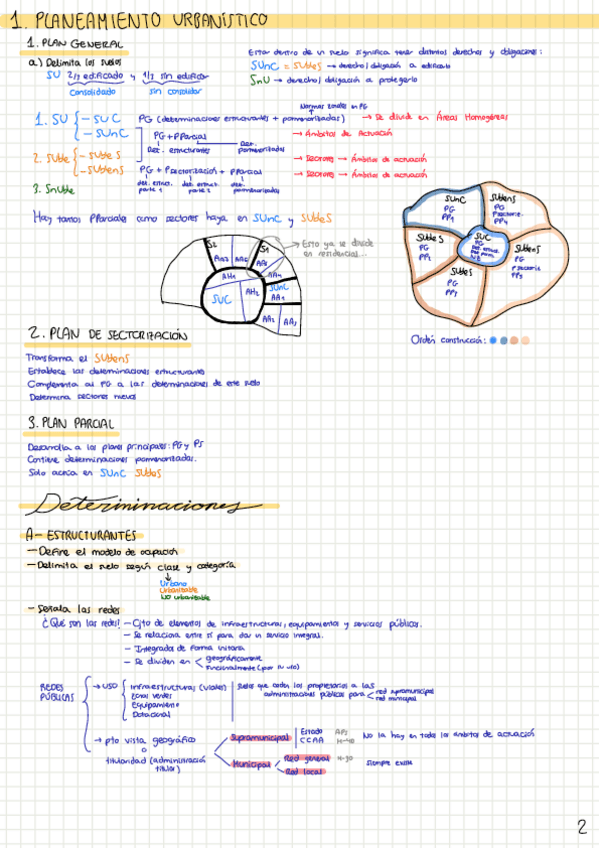 1. PLANEAMIENTO URBANÍSTICO
1. PLAN GENERAL
a) Delimita los suelos
SU 2/3 edificado y 1/3 sin edificar
consolidado sin consolidar
Estar dentro de un suelo significa tener distintos derechos y obligaciones:
SUnC = SUbleS → derecho/obligación a edificarlo
SnU → derecho/obligación a protegerlo
Normas zonales en PG
1. SU - SUC PG (determinaciones estructurantes + pormenorizadas) → Se divide en Áreas Homogéneas
- SUnC PG + PParcial → Ámbitos de Actuación
Det. estructurantes Det. pormenorizadas
2. SUble - SUbleS → Sectores → Ámbitos de actuación
- SUblenS PG + PSectorización + PParcial → Sectores → Ámbitos de actuación
det. estruct. parte 1 det. estruct. parte 2 det. pormenorizadas
3. SnUble
Hay tantos PParciales como sectores haya en SUnC y SUbleS
S2 S1
AA3 AA2 AA1
AH1 AH2
SUC
SUnC
AA1
AA2 AA3
Esto ya se divide en residencial...
SUnC
PG
PP4
SUblenS
PG
PSectoriz.
PP4
SUbleS
PG
PP2
SUC
PG
SUblenS
PG
PP3
SUbleS
PG
PP1
Orden construcción:
2. PLAN DE SECTORIZACIÓN
Transforma el SUblenS
Establece las determinaciones estructurantes
Complementa al PG a las determinaciones de este suelo
Determina sectores nuevos
3. PLAN PARCIAL
Desarrolla a los planes principales: PG y PS
Contiene determinaciones pormenorizadas.
Solo acerca en SUnC SUbleS
Determininaciones
A- ESTRUCTURANTES
- Define el modelo de ocupación
- Delimita el suelo según clase y categoría
Urbano
Urbanizable
No urbanizable
- Señala las redes
¿Qué son las redes? - Cjto de elementos de infraestructuras, equipamientos y servicios públicos.
- Se relaciona entre sí para dar un servicio integral.
- Integrada de forma unitaria
- Se dividen en geográficamente
funcionalmente (por su uso)
REDES PÚBLICAS
→ USO Infraestructuras (viales)
Zonas verdes
Equipamiento
Dotacional
Suelos que ceden los propietarios a las administraciones públicas para red supramunicipal
red municipal
→ pto vista geográfico
o
titularidad (administración titular)
Supramunicipal Estado
CCAA
No la hay en todos los ámbitos de actuación
Municipal Red general
Red local
siempre existe
2